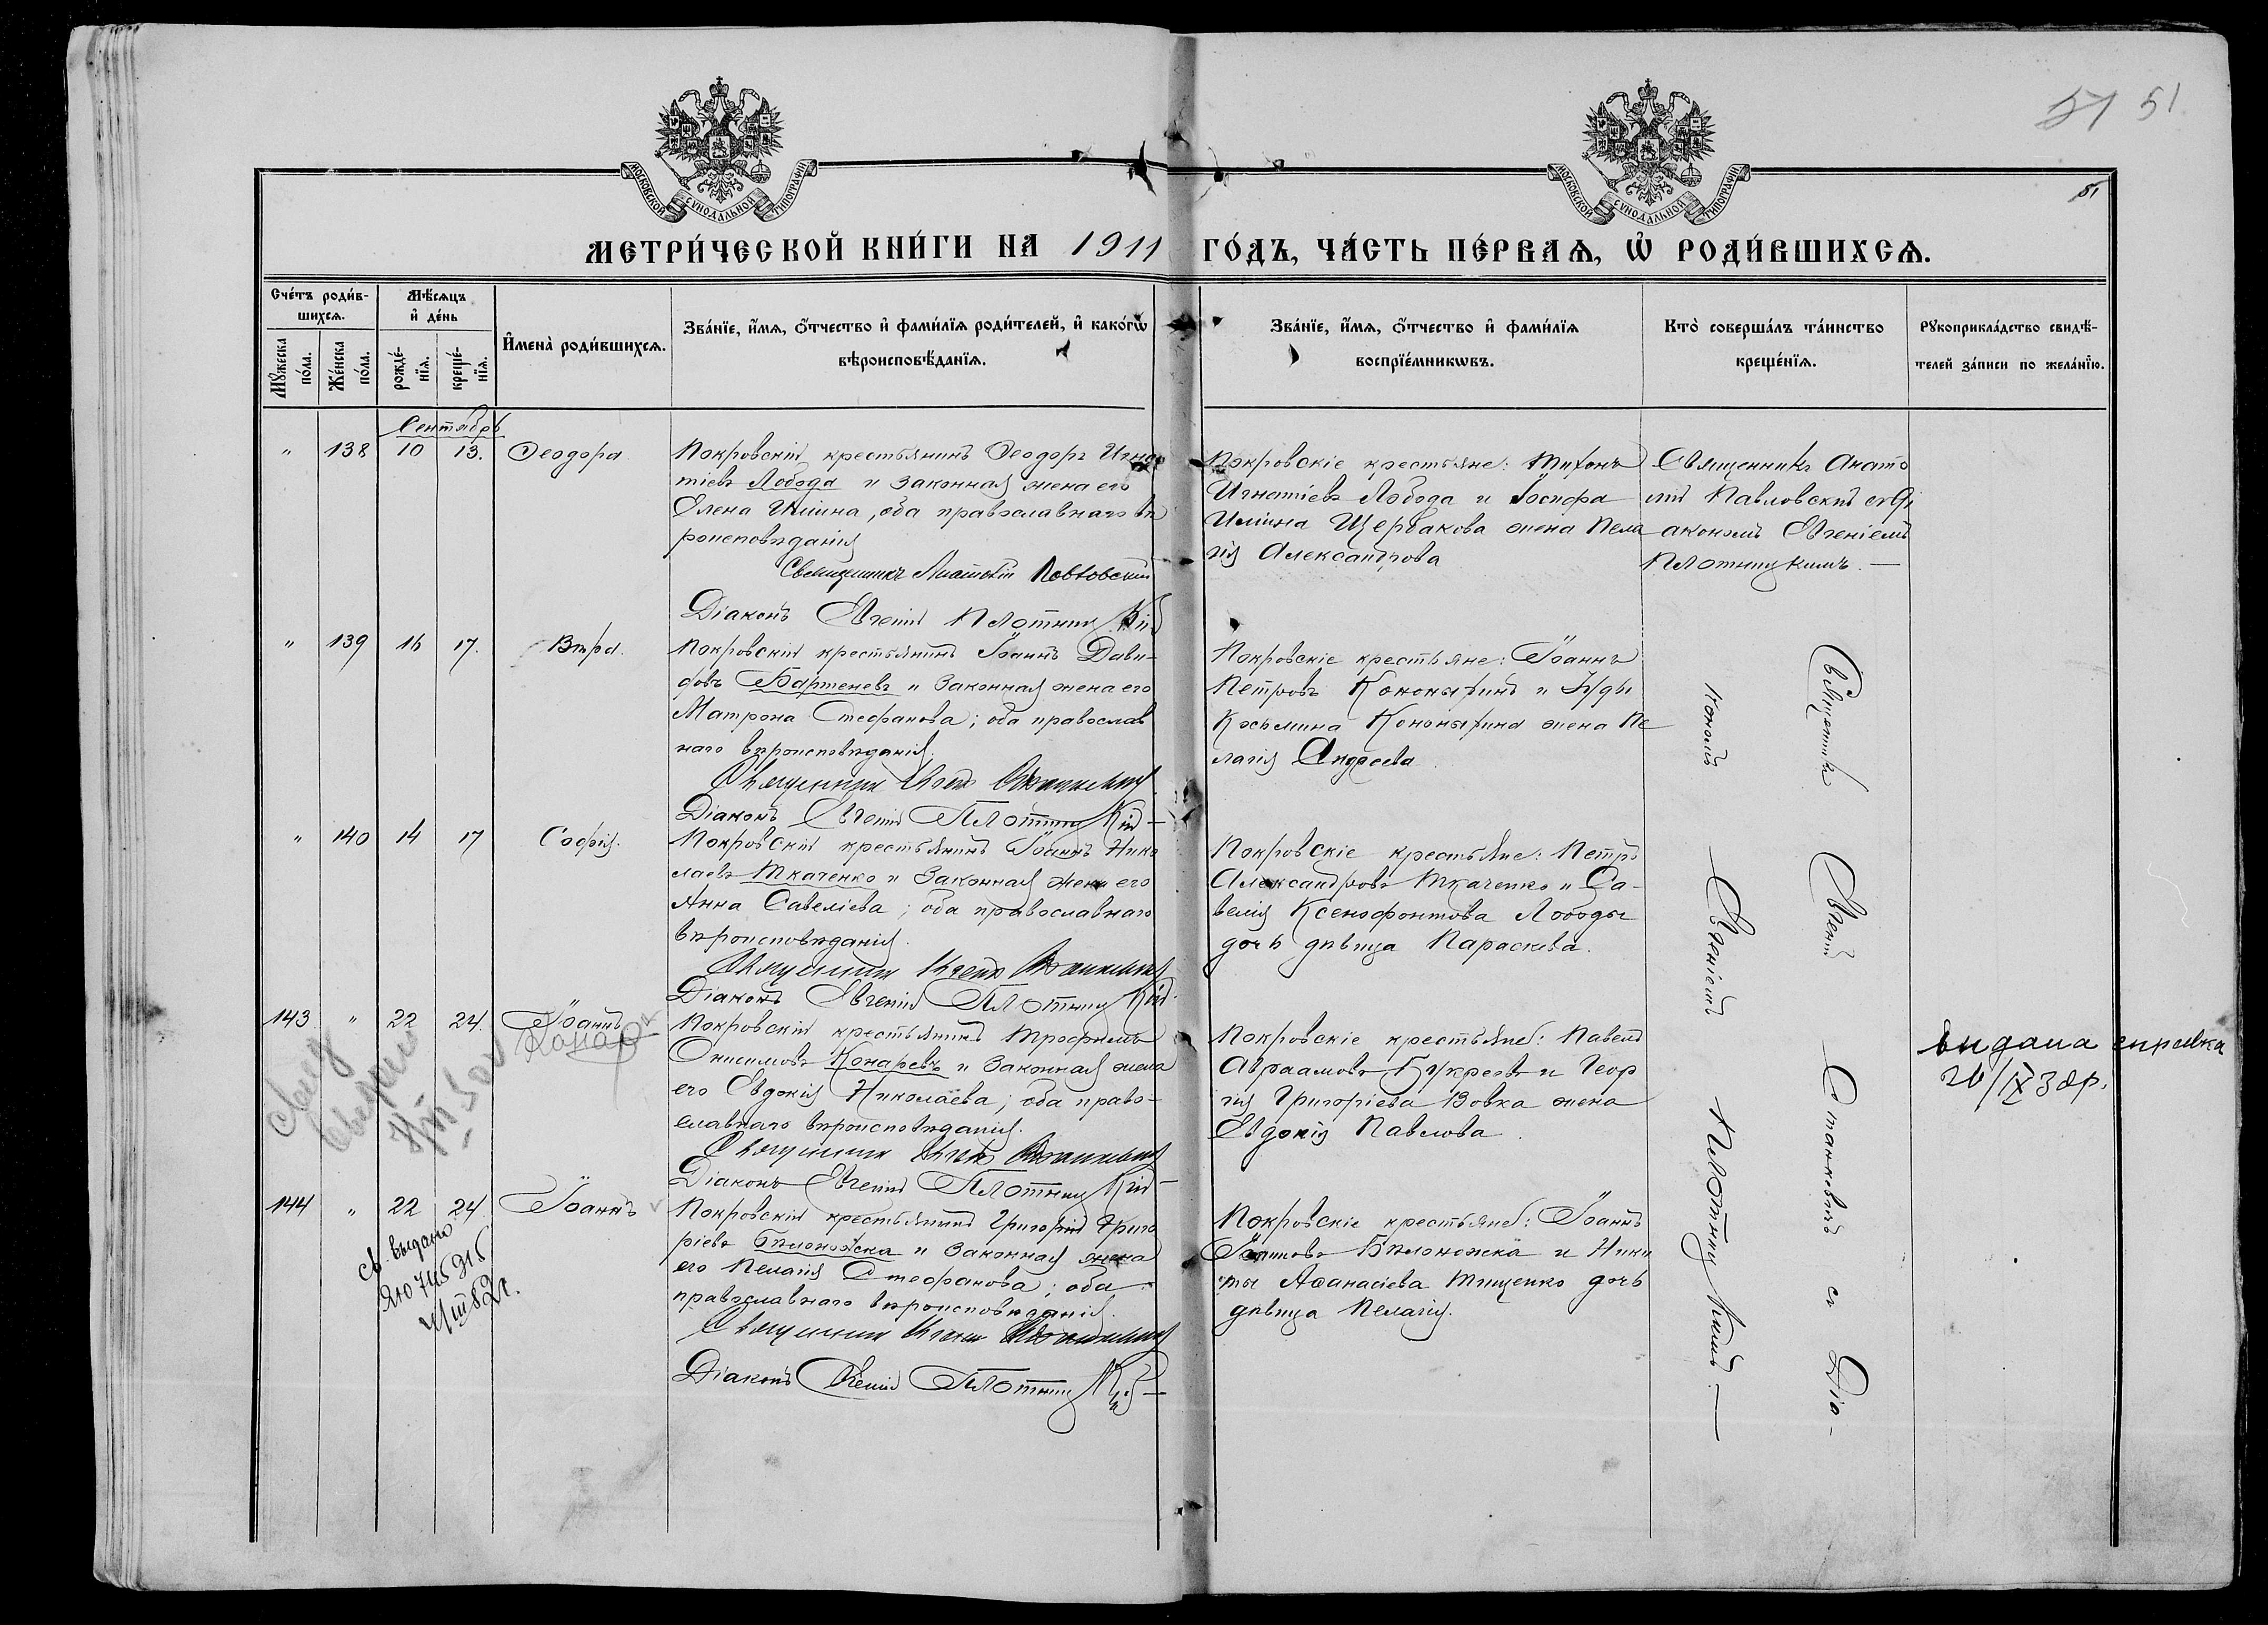 51 51
51
МОСКОВСКОЙ СУНОДАЛЬНОЙ ТИПОГРАФІИ
МОСКОВСКОЙ СУНОДАЛЬНОЙ ТИПОГРАФІИ
МЕТРИ́ЧЕСКОЙ КНИ́ГИ НА 1911 ГО́ДЪ, ЧА́СТЬ ПЕ́РВАѦ, Ѿ РОДИ́ВШИХСѦ.
Сче́тъ роди́в-
шихсѧ.
Мꙋ́жеска по́ла.
Же́нска по́ла.
Мѣ́сѧцъ
и҆ де́нь
рожде́-
нїѧ.
креще́-
нїѧ.
И҆мена̀ роди́вшихсѧ.
Зва́нїе, и҆́мѧ, ѻ҆́тчество и҆ фами́лїѧ роди́телей, и҆ како́гѡ
вѣроисповѣ́данїѧ.
Зва́нїе, и҆́мѧ, ѻ҆́тчество и҆ фами́лїѧ
воспрїе́мникѡвъ.
Кто̀ соверша́лъ та́инство
креще́нїѧ.
Рꙋкоприкла́дство свидѣ́-
телей за́писи по жела́нїю.
Сентябрь
" 138 10 13. Ѳеодора
Покровскій крестьянинъ Ѳеодоръ Игна
тіевъ Лобода и законная жена его
Елена Ильина, оба православнаго вѣ
роисповѣданія
Священникъ Анатолій Павловскій
Діаконъ Евгеній Плотницкій
Покровскіе крестьяне: Тихонъ
Игнатіевъ Лобода и Іосифа
Ильина Щербакова жена Пела
гія Александрова
Священникъ Анато
лій Павловскій съ Ді
акономъ Евгеніемъ
Плотницкимъ. —
" 139 16 17. Вѣра.
Покровскій крестьянинъ Іоаннъ Дави-
довъ Бартеневъ и законная жена его
Матрона Стефанова; оба православ
наго вѣроисповѣданія.
Священникъ Евгеній Станкевичъ
Діаконъ Евгеній Плотницкій —
Покровскіе крестьяне: Іоаннъ
Петровъ Кононыхинъ и
Косьмина Кононыхина жена Пе
лагія Андреева.
Священникъ Евгеній Станкевичъ съ Діа-
кономъ Евгеніемъ Плотницкимъ. —
" 140 14 17 Софія.
Покровскій крестьянинъ Іоаннъ Нико
лаевъ Ткаченко и законная жена его
Анна Савеліева; оба православнаго
вѣроисповѣданія.
Священникъ Евгеній Станкевичъ
Діаконъ Евгеній Плотницкій
Покровскіе крестьяне: Петръ
Александровъ Ткаченко и Са-
велія Ксенофонтова Лободы
дочь дѣвица Параскева.
143 " 22 24. Іоаннъ
Конар
Покровскій крестьянинъ Трофимъ
Онисимовъ Конаревъ и законная жена
его Евдокія Николаева; оба право-
славнаго вѣроисповѣданія.
Священникъ Евгеній Станкевичъ
Діаконъ Евгеній Плотницкій —
Покровскіе крестьяне: Павелъ
Авраамовъ Букреевъ и Геор
гія Григоріева Вовка жена
Евдокія Павлова.
видана справка
26/IX 38р.
144 " 22 24 Іоаннъ
св. выдано
ЯЮ 745315
Покровскій крестьянинъ Григорій Григо
ріевъ Бѣлоножка и законная жена
его Пелагія Стефанова; оба
православнаго вѣроисповѣданія.
Священникъ Евгеній Станкевичъ
Діаконъ Евгеній Плотницкій —
Покровскіе крестьяне: Іоаннъ
Бѣлоножка и Ники
ты Аѳанасіева Тищенко дочь
дѣвица Пелагія.